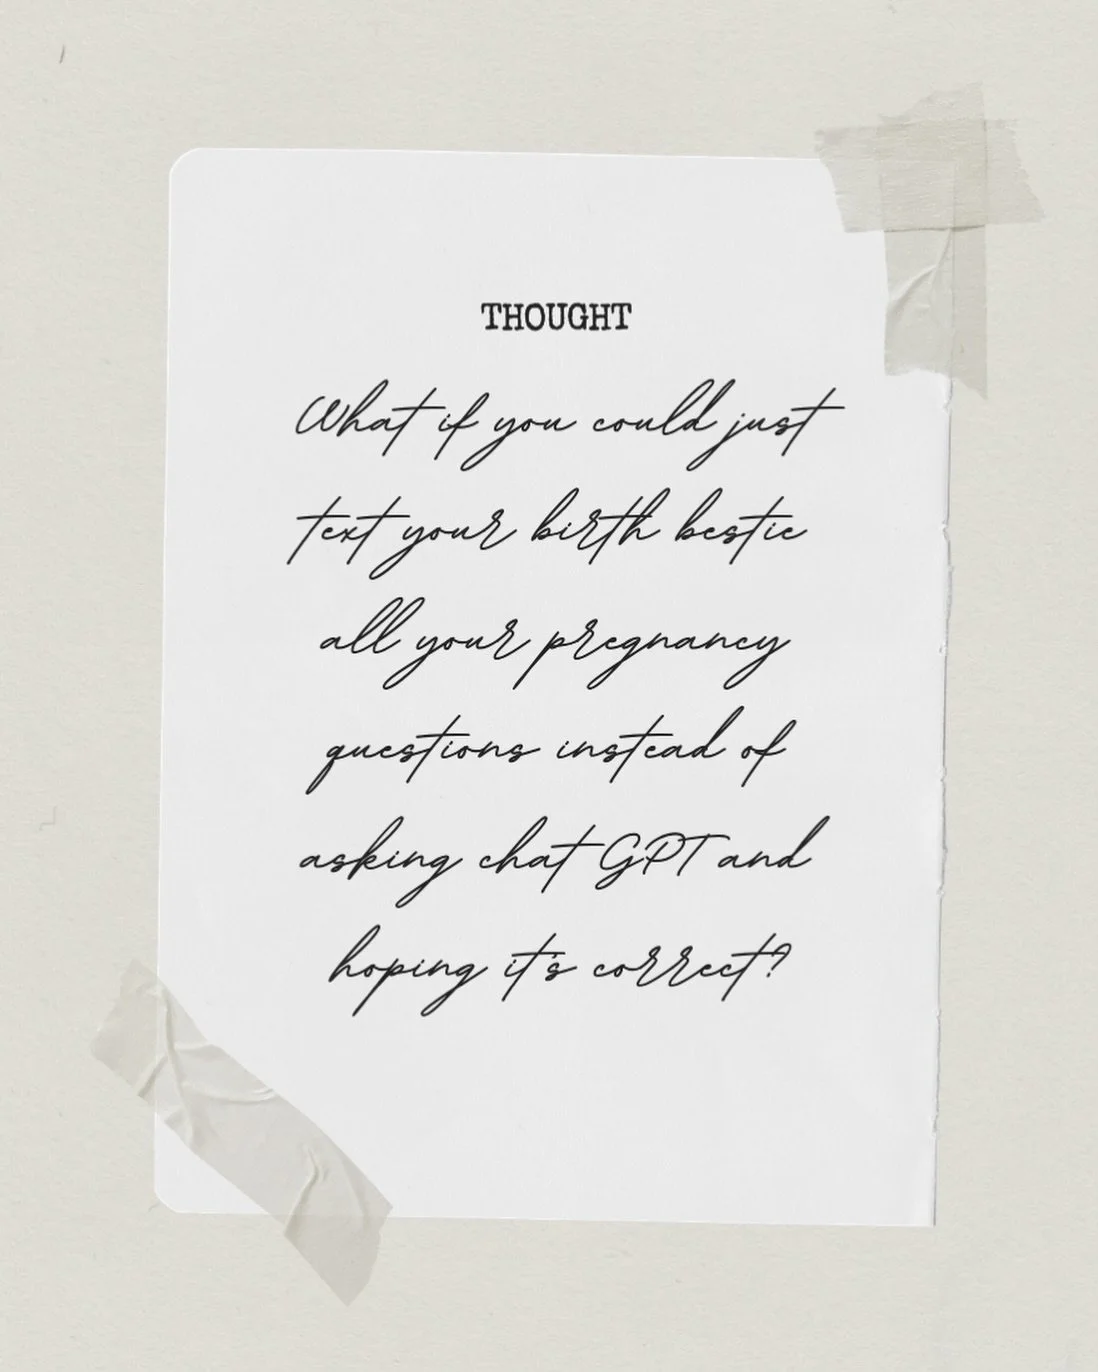 THOUGHT
What if you could just
text your birth bestie
all your pregnancy
questions instead of
asking chat GPT and
hoping it's correct?